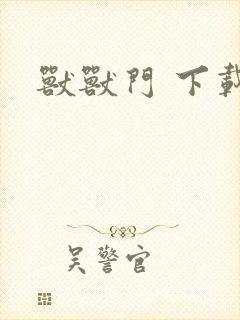 獸獸門 下載
吳警官